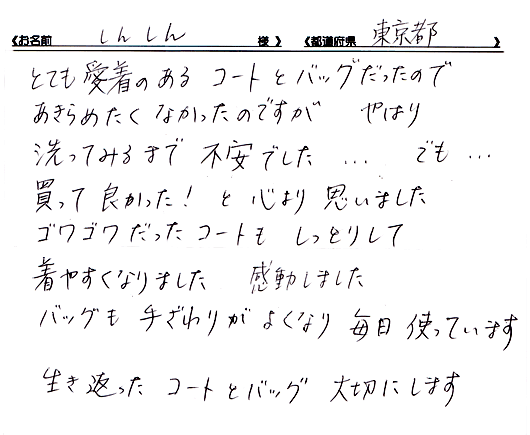 《お名前 しんしん 様 》 《都道府県 東京都 》
とても愛着のある コートとバッグだったので
あきらめたくなかったのですが やはり
洗ってみるまで 不安でした … でも …
買って良かった！ と 心より 思いました
ゴワゴワだったコートも しっとりして
着やすくなりました 感動しました
バッグも 手ざわりが よくなり 毎日 使っています
生き返った コートとバッグ 大切にします